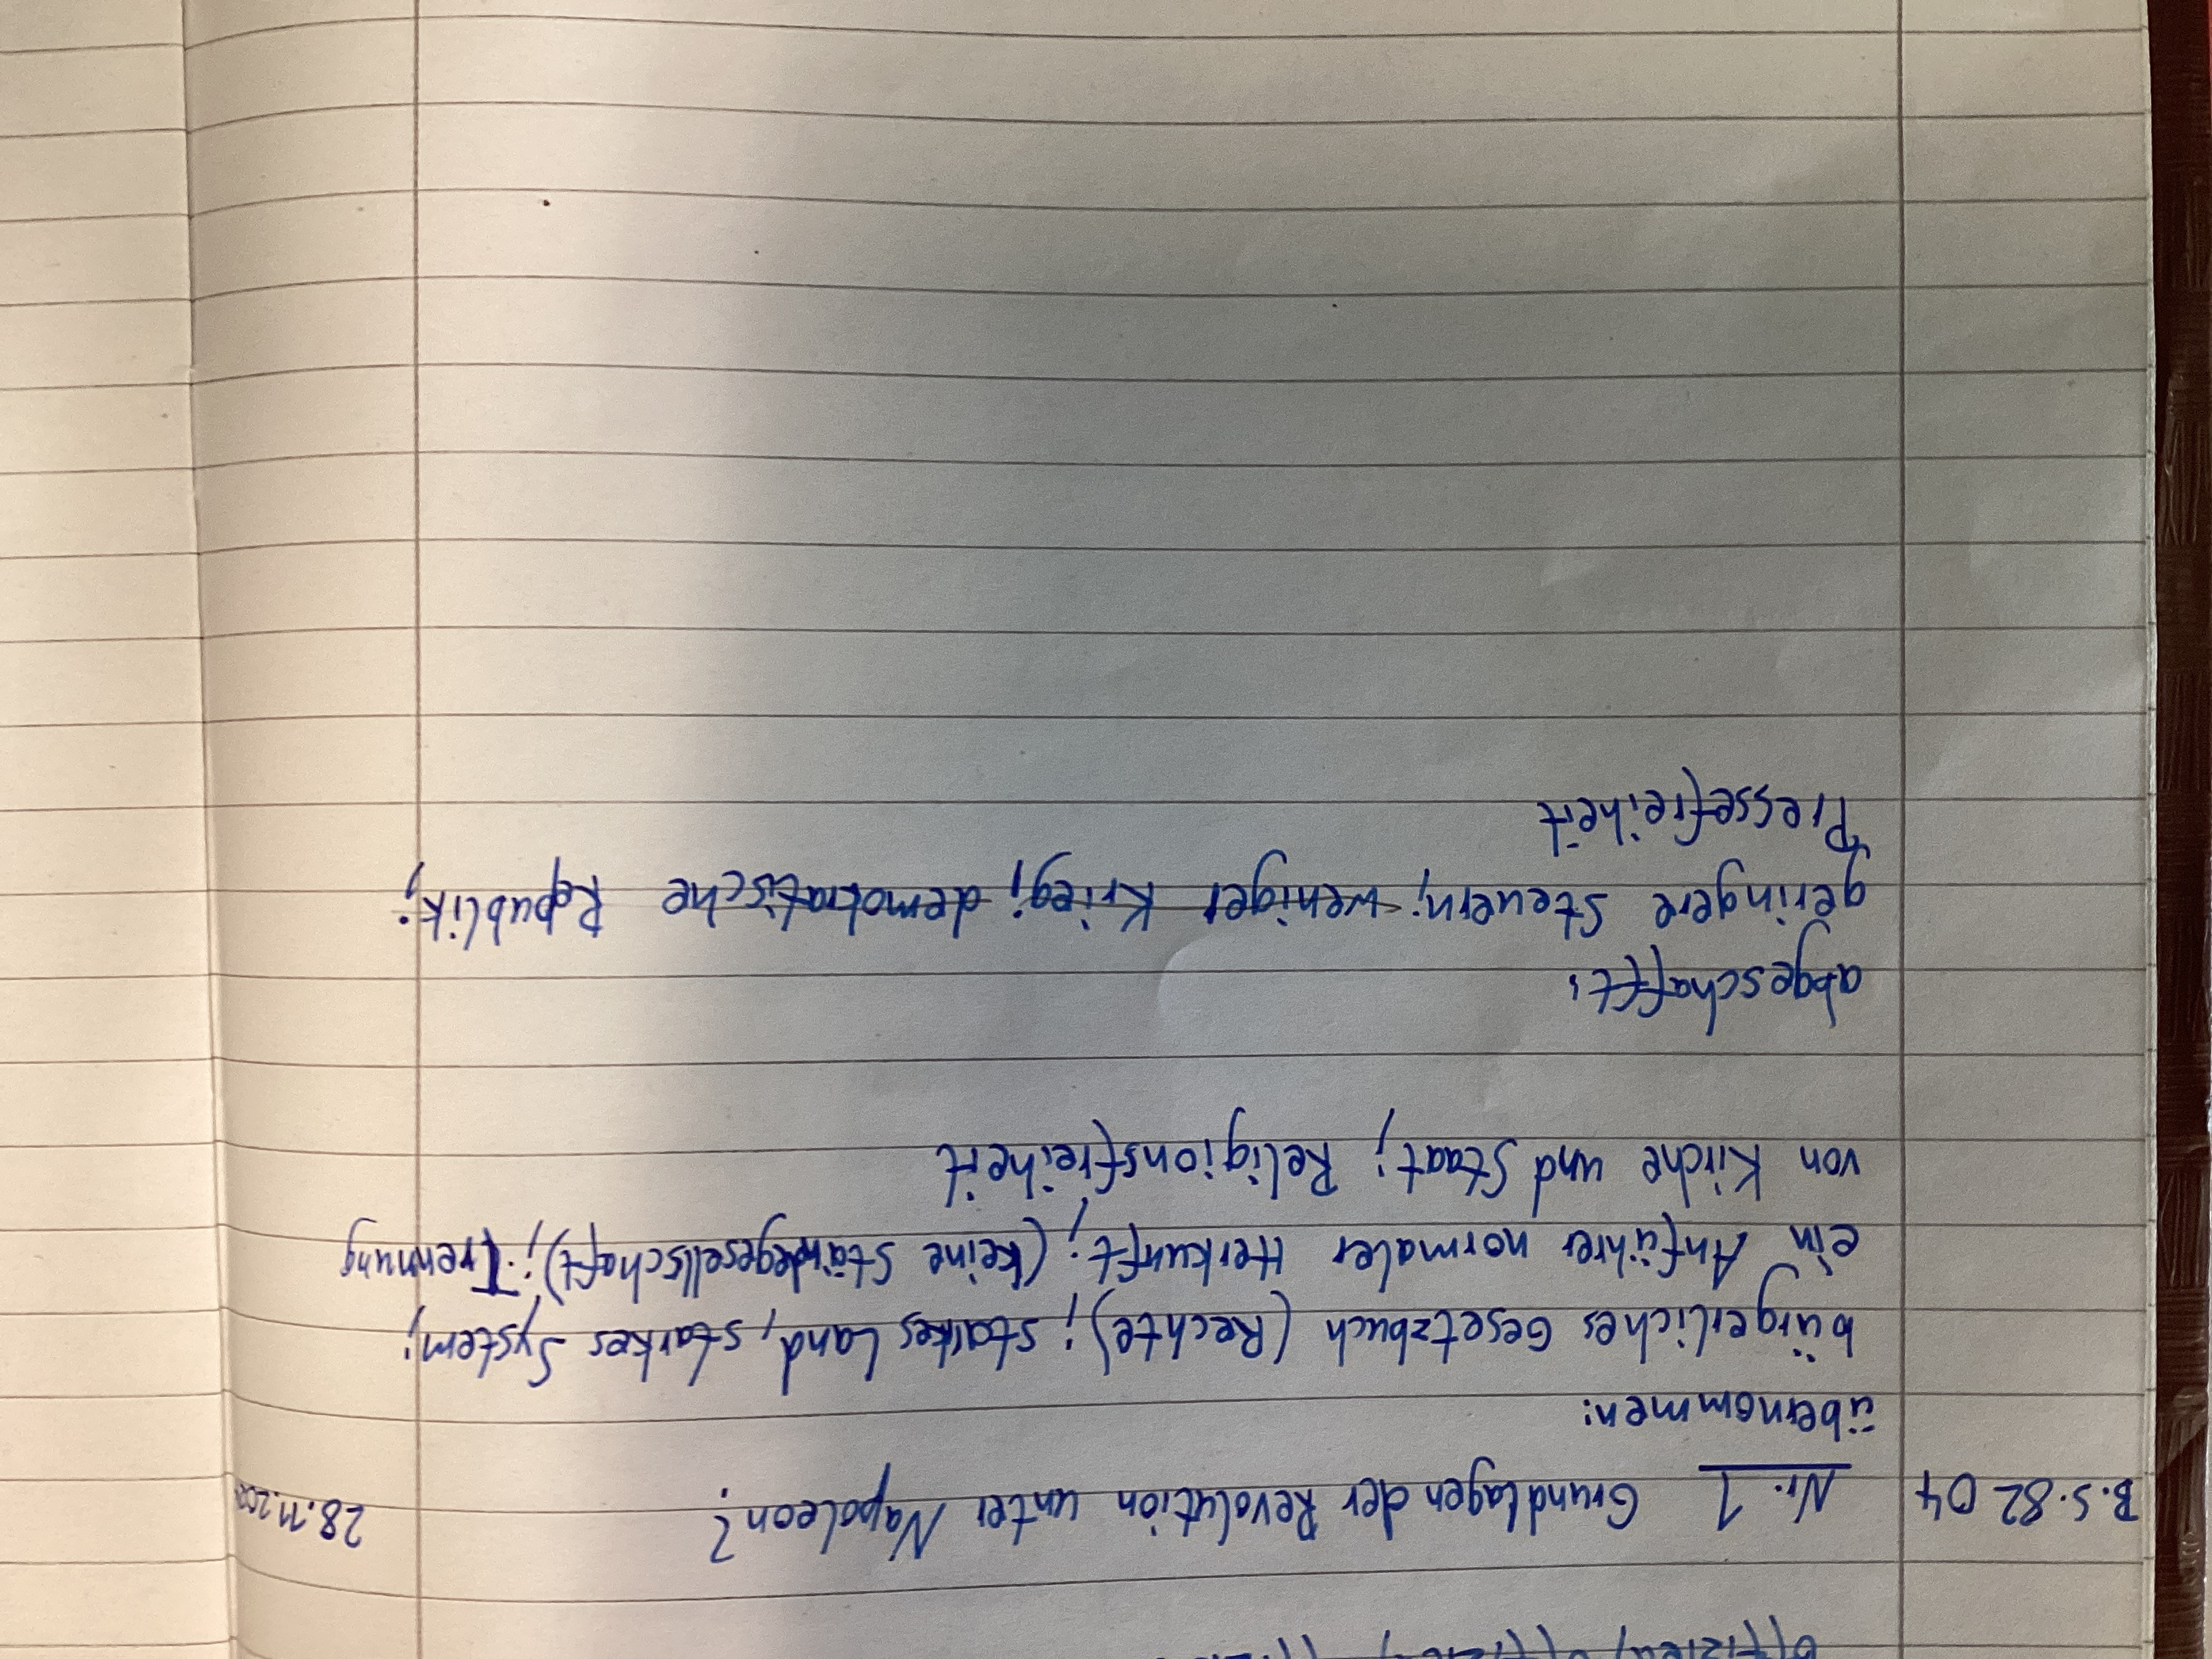 offiziell, offiziell,
B.S. 82 04 Nr. 1 Grundlagen der Revolution unter Napoleon? 28.11.
übernommen:
bürgerliches Gesetzbuch (Rechte); starkes Land, starkes System;
ein Anführer normaler Herkunft; (keine Ständegesellschaft); Trennung
von Kirche und Staat; Religionsfreiheit
abgeschafft:
geringere Steuern; weniger Krieg; demokratische Republik;
Pressefreiheit